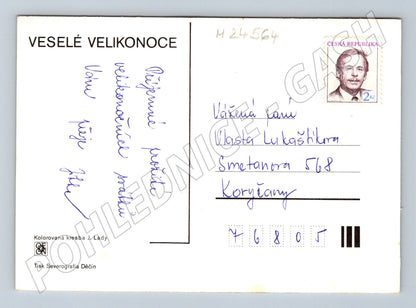 VESELÉ VELIKONOCE
Příjemné prožití
velikonočních svátků
Vám přeje Jitka
Kolorovaná kresba J. Lady
Tisk Severografia Děčín
M 24564
ČESKÁ REPUBLIKA
2 Kč
Vážená paní
Vlasta Lukaštíkova
Smetanova 568
Koryčany
7 6 8 0 5
POHLEDNICE - GASH